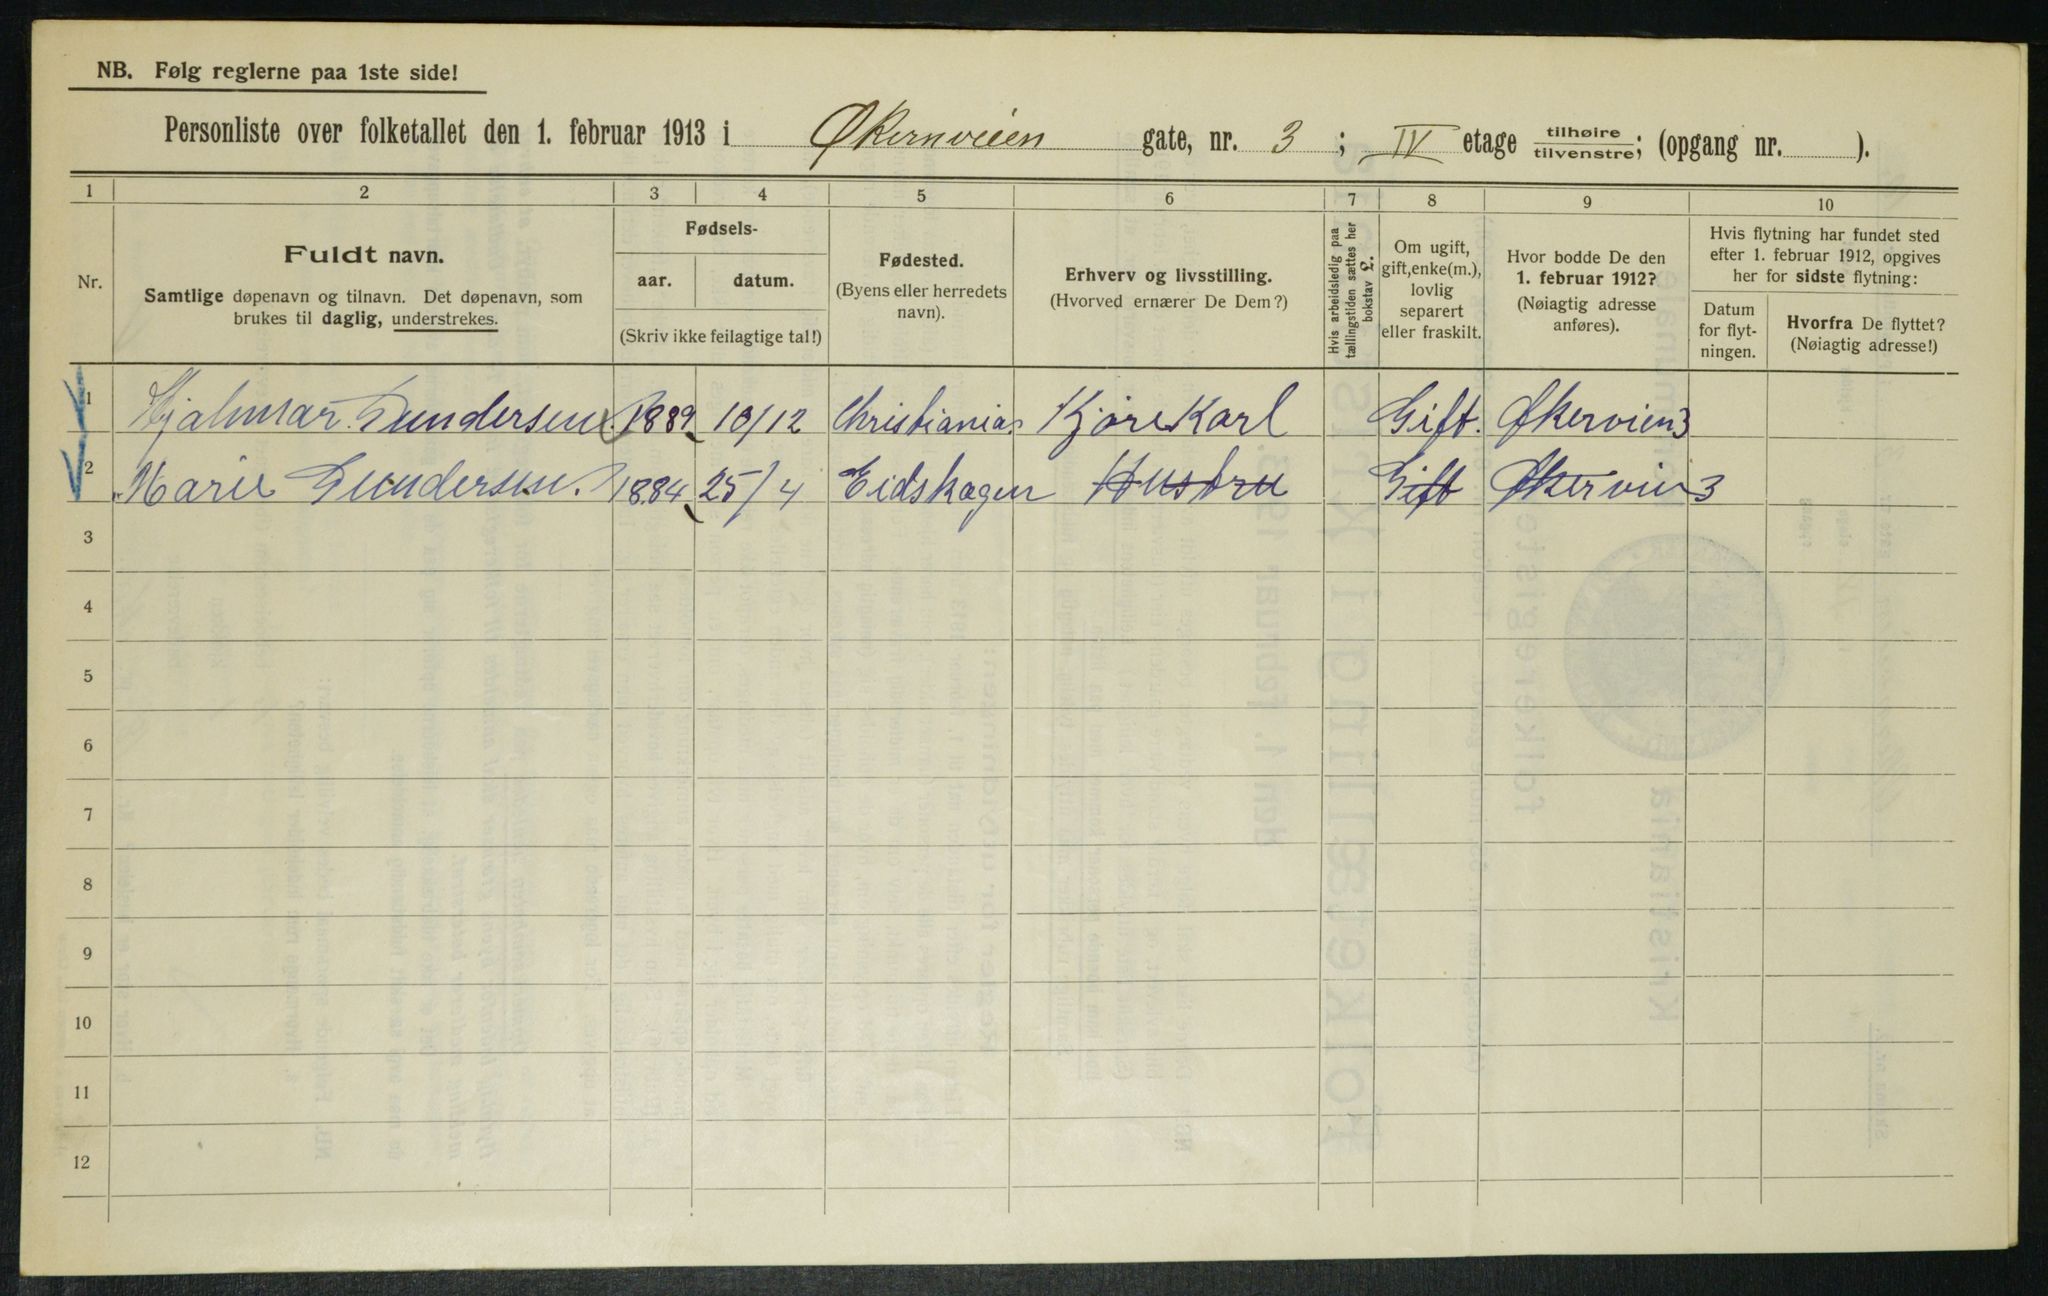 NB. Følg reglerne paa 1ste side!
Personliste over folketallet den 1. februar 1913 i Økernveien gate, nr. 3; IV etage tilhøire / tilvenstre; (opgang nr. ).
1 2 3 4 5 6 7 8 9 10
Nr.
Fuldt navn.
Samtlige døpenavn og tilnavn. Det døpenavn, som
brukes til daglig, understrekes.
Fødsels-
aar. datum.
(Skriv ikke feilagtige tal!)
Fødested.
(Byens eller herredets
navn).
Erhverv og livsstilling.
(Hvorved ernærer De Dem?)
Hvis arbeidsledig paa
tællingstiden sættes her
bokstav £.
Om ugift,
gift, enke(m.),
lovlig
separert
eller fraskilt.
Hvor bodde De den
1. februar 1912?
(Nøiagtig adresse
anføres).
Hvis flytning har fundet sted
efter 1. februar 1912, opgives
her for sidste flytning:
Datum
for flyt-
ningen.
Hvorfra De flyttet?
(Nøiagtig adresse!)
1 Hjalmar Gundersen 1889 13/12 Christiania Kjørekarl Gift. Økervien 3
2 Marie Gundersen. 1884 25/4 Eidskogen Husbru Gift Økervien 3
3
4
5
6
7
8
9
10
11
12